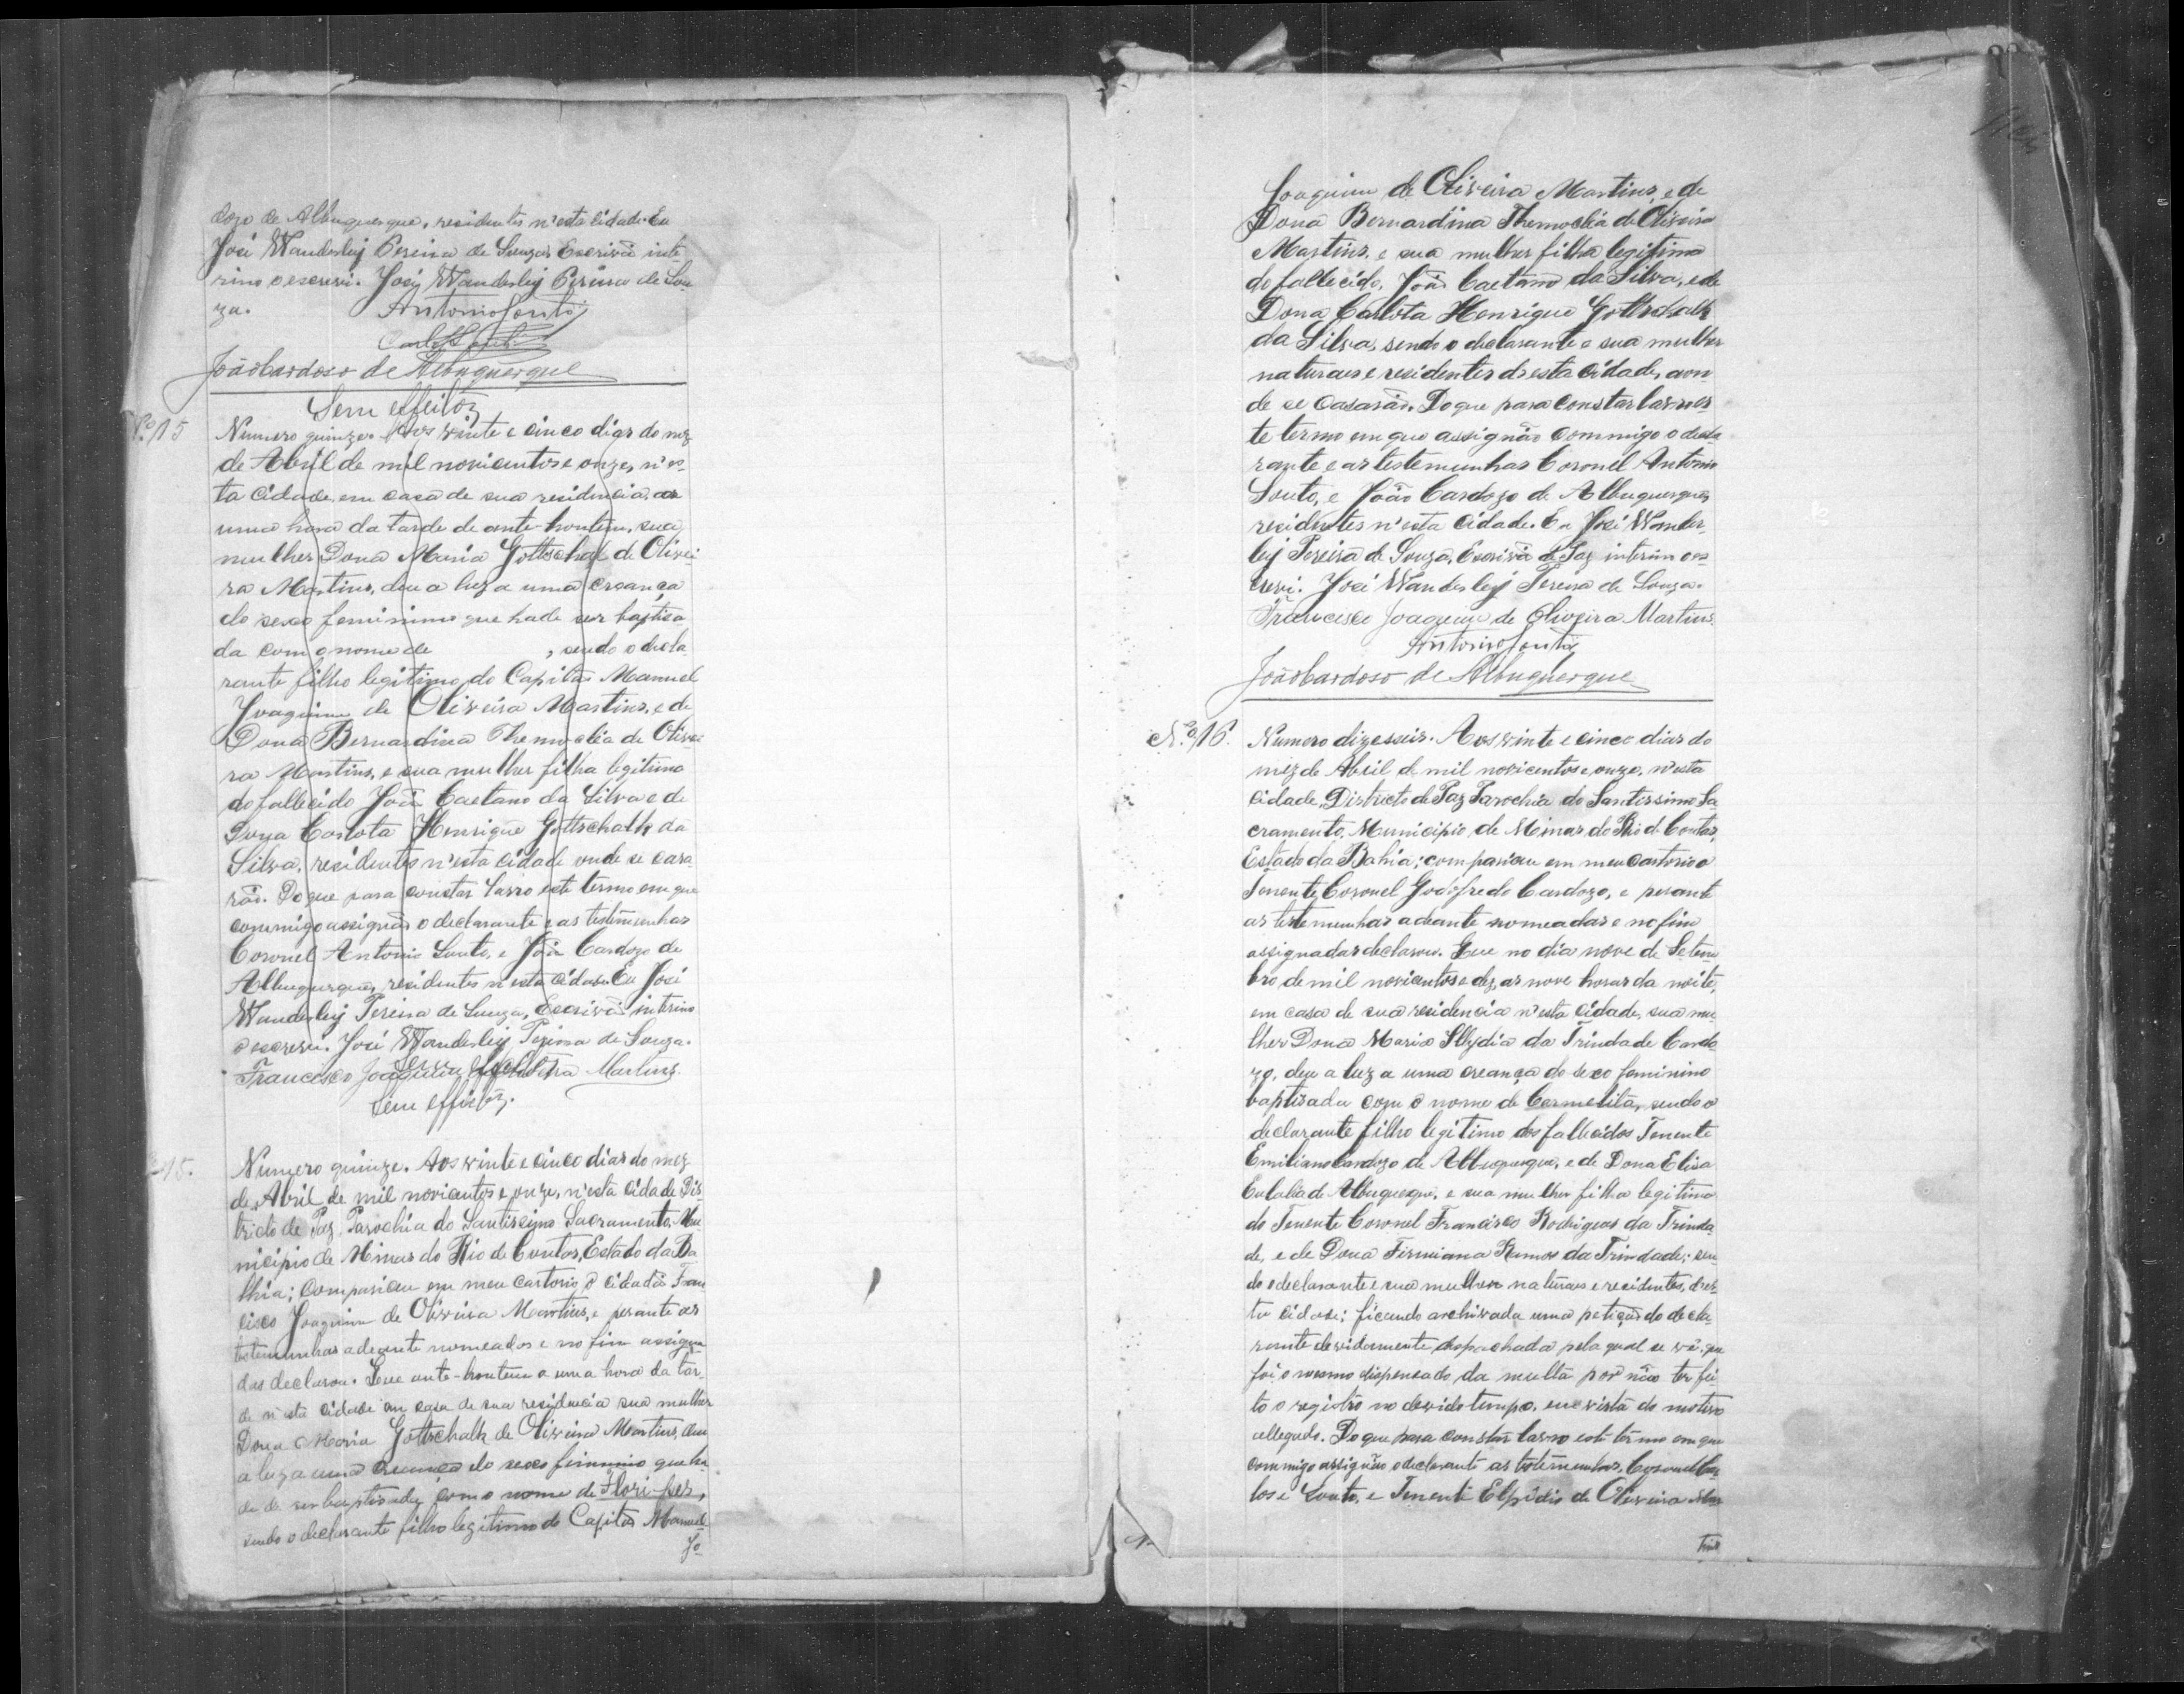 dozo de Albuquerque, residentes n'esta cidade. Eu
José Wanderley Pereira de Souza, Escrivã inte-
rino o escrevi. José Wanderley Pereira de Sou-
za.
Antonio Souto
João Cardoso de Albuquerque
Sem effeito
Nº 15
Numero quinze. Aos vinte e cinco dias do mez
de Abril de mil novicentos e onze, n'es-
ta cidade, em casa de sua residencia, as
uma hora da tarde de ante-hontem, sua
mulher Dona Maria Gottschalk de Olivei-
ra Martins, deu a luz a uma creança
do sexo feminino que hade ser baptisa-
da com o nome de , sendo o decla-
rante filho legitimo do Capitão Manuel
Joaquim de Oliveira Martins, e de
Dona Bernardina Themoclia de Olivei-
ra Martins, e sua mulher filha legitima
do fallecido João Caetano da Silva e de
Dona Carlota Henrique Gottschalk da
Silva, residentes n'esta cidade onde se casa-
rão. Do que para constar lavro este termo em que
commigo assignão o declarante e as testemunhas
Coronel Antonio Souto, e João Cardozo de
Albuquerque, residentes n'esta cidade. Eu José
Wanderley Pereira de Souza, Escrivã interino
o escrevi. José Wanderley Pereira de Souza.
Francisco Joaquim de Oliveira Martins
Sem effeito
Sem effeito.
15.
Numero quinze. Aos vinte e cinco dias do mez
de Abril de mil novicentos e onze, n'esta cidade Dis-
tricto de Paz, Parochia do Santissimo Sacramento, Mu-
nicipio de Minas do Rio de Contas, Estado da Ba-
hia; compariceu em meu cartorio, o cidadã Fran-
cisco Joaquim de Oliveira Martins, e perante as
testemunhas adeante nomeados e no fim assigna-
das declarou. Que ante-hontem a uma hora da tar-
de n'esta cidade em casa de sua residencia sua mulher
Dona Maria Gottschalk de Oliveira Martins, deu
a luz a uma creança do sexo feminino que ha
de de ser baptisada com o nome de Flori-pes,
sendo o declarante filho legitimo do Capitão Manuel
Jo-
Joaquim de Oliveira Martins, e de
Dona Bernardina Themoclia de Oliveira
Martins, e sua mulher filha legitima
do fallecido, João Caetano da Silva, e de
Dona Carlota Henrique Gottschalk
da Silva, sendo o declarante e sua mulher
naturaes e residentes d'esta cidade, aon-
de se casarão. Do que para constar lavro es-
te termo em que assignão commigo o decla-
rante e as testemunhas Coronel Antonio
Souto, e João Cardozo de Albuquerque,
residentes n'esta cidade. Eu José Wander-
ley Pereira de Souza, Escrivã de Paz interino o es-
crevi. José Wanderley Pereira de Souza.
Francisco Joaquim de Oliveira Martins.
Antonio Souto
João Cardoso de Albuquerque
Nº 16.
Numero dizesseis. Aos vinte e cinco dias do
mez de Abril de mil novicentos e onze, n'esta
cidade, Districto de Paz Parochia do Santissimo Sa-
cramento, Municipio de Minas do Rio de Contas,
Estado da Bahia; compariceu em meu cartorio o
Tenente Coronel Godofredo Cardozo, e perante
as testemunhas adeante nomeadas e no fim
assignadas declarou. Que no dia nove de Setem-
bro de mil novicentos e dez, as nove horas da noite,
em casa de sua residencia n'esta cidade, sua mu-
lher Dona Maria Illydia da Trindade Cardo-
zo, deu a luz a uma creança do sexo feminino
baptisada com o nome de Carmelita, sendo o
declarante filho legitimo dos fallecidos Tenente
Emiliano Cardozo de Albuquerque, e de Dona Elisa
Eulalia de Albuquerque, e sua mulher filha legitima
do Tenente Coronel Francisco Rodrigues da Trinda-
de, e de Dona Firmiana Ramos da Trindade; sen-
do o declarante e sua mulher naturaes e residentes, d'es-
ta cidade; ficando archivada uma petição do decla-
rante devidamente despachada pela qual se vê que
foi o mesmo dispensado da multa por não ter fei-
to o registro no devido tempo, em vista do motivo
allegado. Do que para constar lavro este termo em que
commigo assignão o declarante as testemunhas, Coronel Car-
los Souto, e Tenente Elpidio de Oliveira Mar-
tins